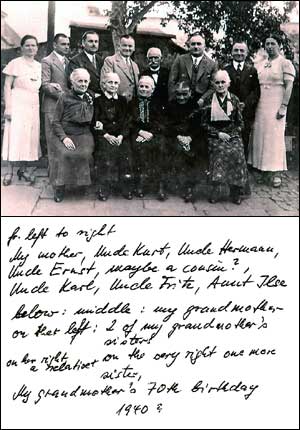 fr. left to right
My mother, Uncle Kurt, Uncle Hermann,
Uncle Ernst, maybe a cousin?,
Uncle Karl, Uncle Fritz, Aunt Ilse
below: middle: my grandmother
on ther left: 2 of my grandmother's
sisters
on her right on the very right one more
a relative? sister,
My grandmother's 70th birthday
1940?